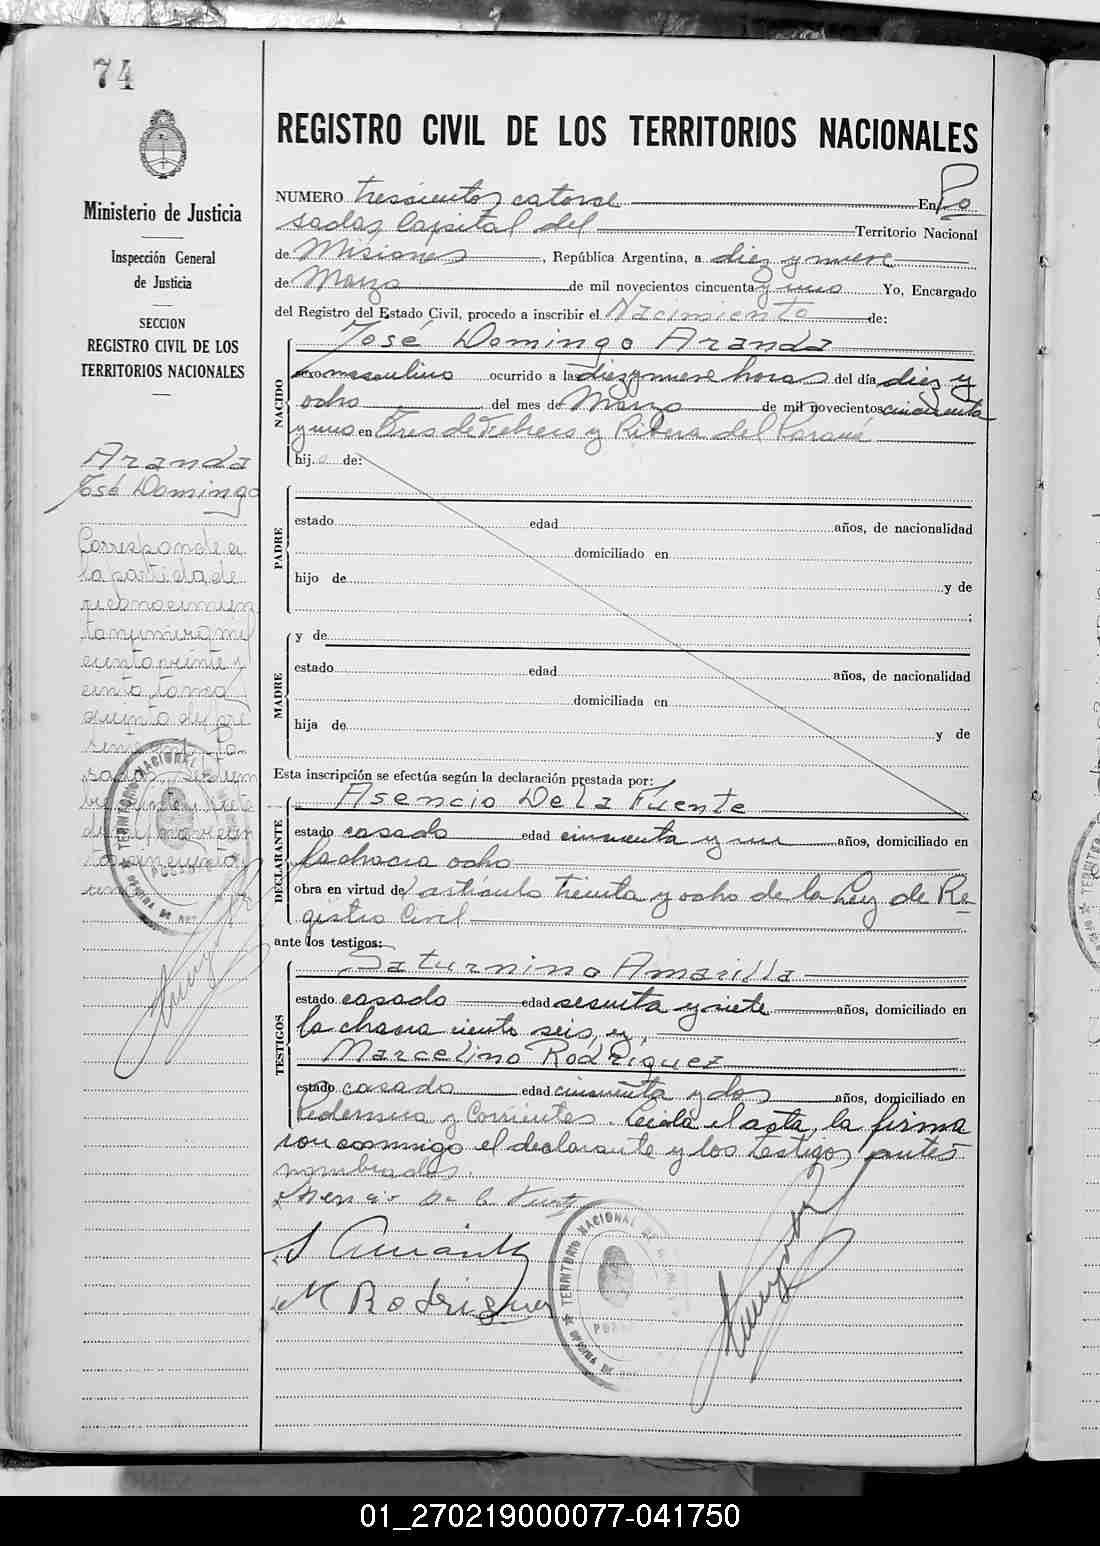 74
Ministerio de Justicia
Inspección General
de Justicia
SECCION
REGISTRO CIVIL DE LOS
TERRITORIOS NACIONALES
Aranda
José Domingo
Corresponde a
la partida de
reconocimien
to número mil
ciento veinte y
REGISTRO CIVIL DE LOS TERRITORIOS NACIONALES
NUMERO trescientos catorce En Po
sadas Capital del Territorio Nacional
de Misiones, República Argentina, a diez y nueve
de Marzo de mil novecientos cincuenta y uno Yo, Encargado
del Registro del Estado Civil, procedo a inscribir el Nacimiento de:
NACIDO
José Domingo Aranda
sexo masculino ocurrido a las diez y nueve horas del día diez y
ocho del mes de Marzo de mil novecientos cincuenta
y uno en Tres de Febrero y Ribera del Paraná
hijo de:
PADRE
estado edad años, de nacionalidad
domiciliado en
hijo de y de
;
MADRE
y de
estado edad años, de nacionalidad
domiciliada en
hija de y de
Esta inscripción se efectúa según la declaración prestada por:
DECLARANTE
Asencio De La Fuente
estado casado edad cincuenta y un años, domiciliado en
la chacra ocho
obra en virtud del artículo treinta y ocho de la Ley de Re
gistro Civil
ante los testigos:
TESTIGOS
Saturnino Amarilla
estado casado edad sesenta y siete años, domiciliado en
la chacra ciento seis, y,
Marcelino Rodriguez
estado casado edad cincuenta y dos años, domiciliado en
Pedernera y Corrientes. Leída el acta, la firma
con conmigo el declarante y los testigos antes
nombrados.
Asencio De la Fuente
S Amarilla
M Rodriguez
TERRITORIO NACIONAL DE
OFICINA DE
01_270219000077-041750